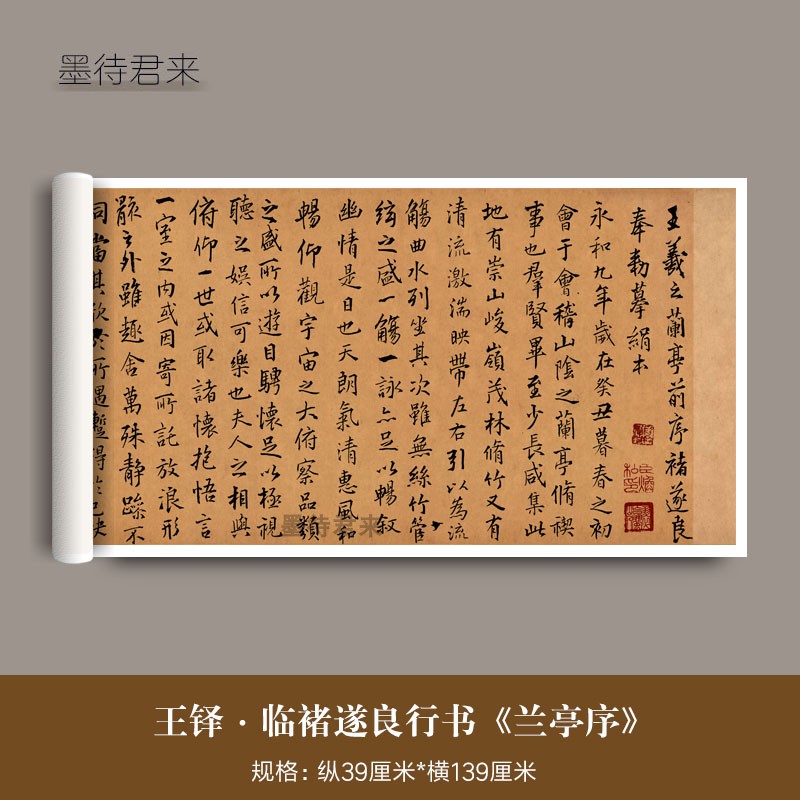 墨待君来
王羲之蘭亭前序褚遂良
奉勅摹絹本
永和九年歲在癸丑暮春之初
會于會稽山陰之蘭亭脩禊
事也羣賢畢至少長咸集此
地有崇山峻嶺茂林脩竹又有
清流激湍映帶左右引以為流
觴曲水列坐其次雖無絲竹管
絃之盛一觴一詠亦足以暢叙
幽情是日也天朗氣清惠風和
暢仰觀宇宙之大俯察品類
之盛所以遊目騁懷足以極視
聽之娛信可樂也夫人之相與
俯仰一世或取諸懷抱悟言
一室之內或因寄所託放浪形
骸之外雖趣舍萬殊靜躁不
同當其欣於所遇暫得於己快
墨待君来
王铎·临褚遂良行书《兰亭序》
规格：纵39厘米*横139厘米